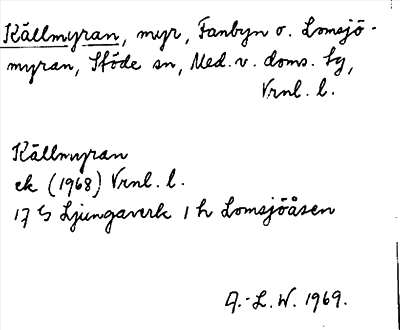 Källmyran, myr, Fanbyn o. Lomsjö-
myran, Stöde sn, Med. v. doms. by,
Vrnl. l.
Källmyran
ek (1968) Vrnl. l.
17 G Ljungaverk 1 h Lomsjöåsen
A.-L. W. 1969.